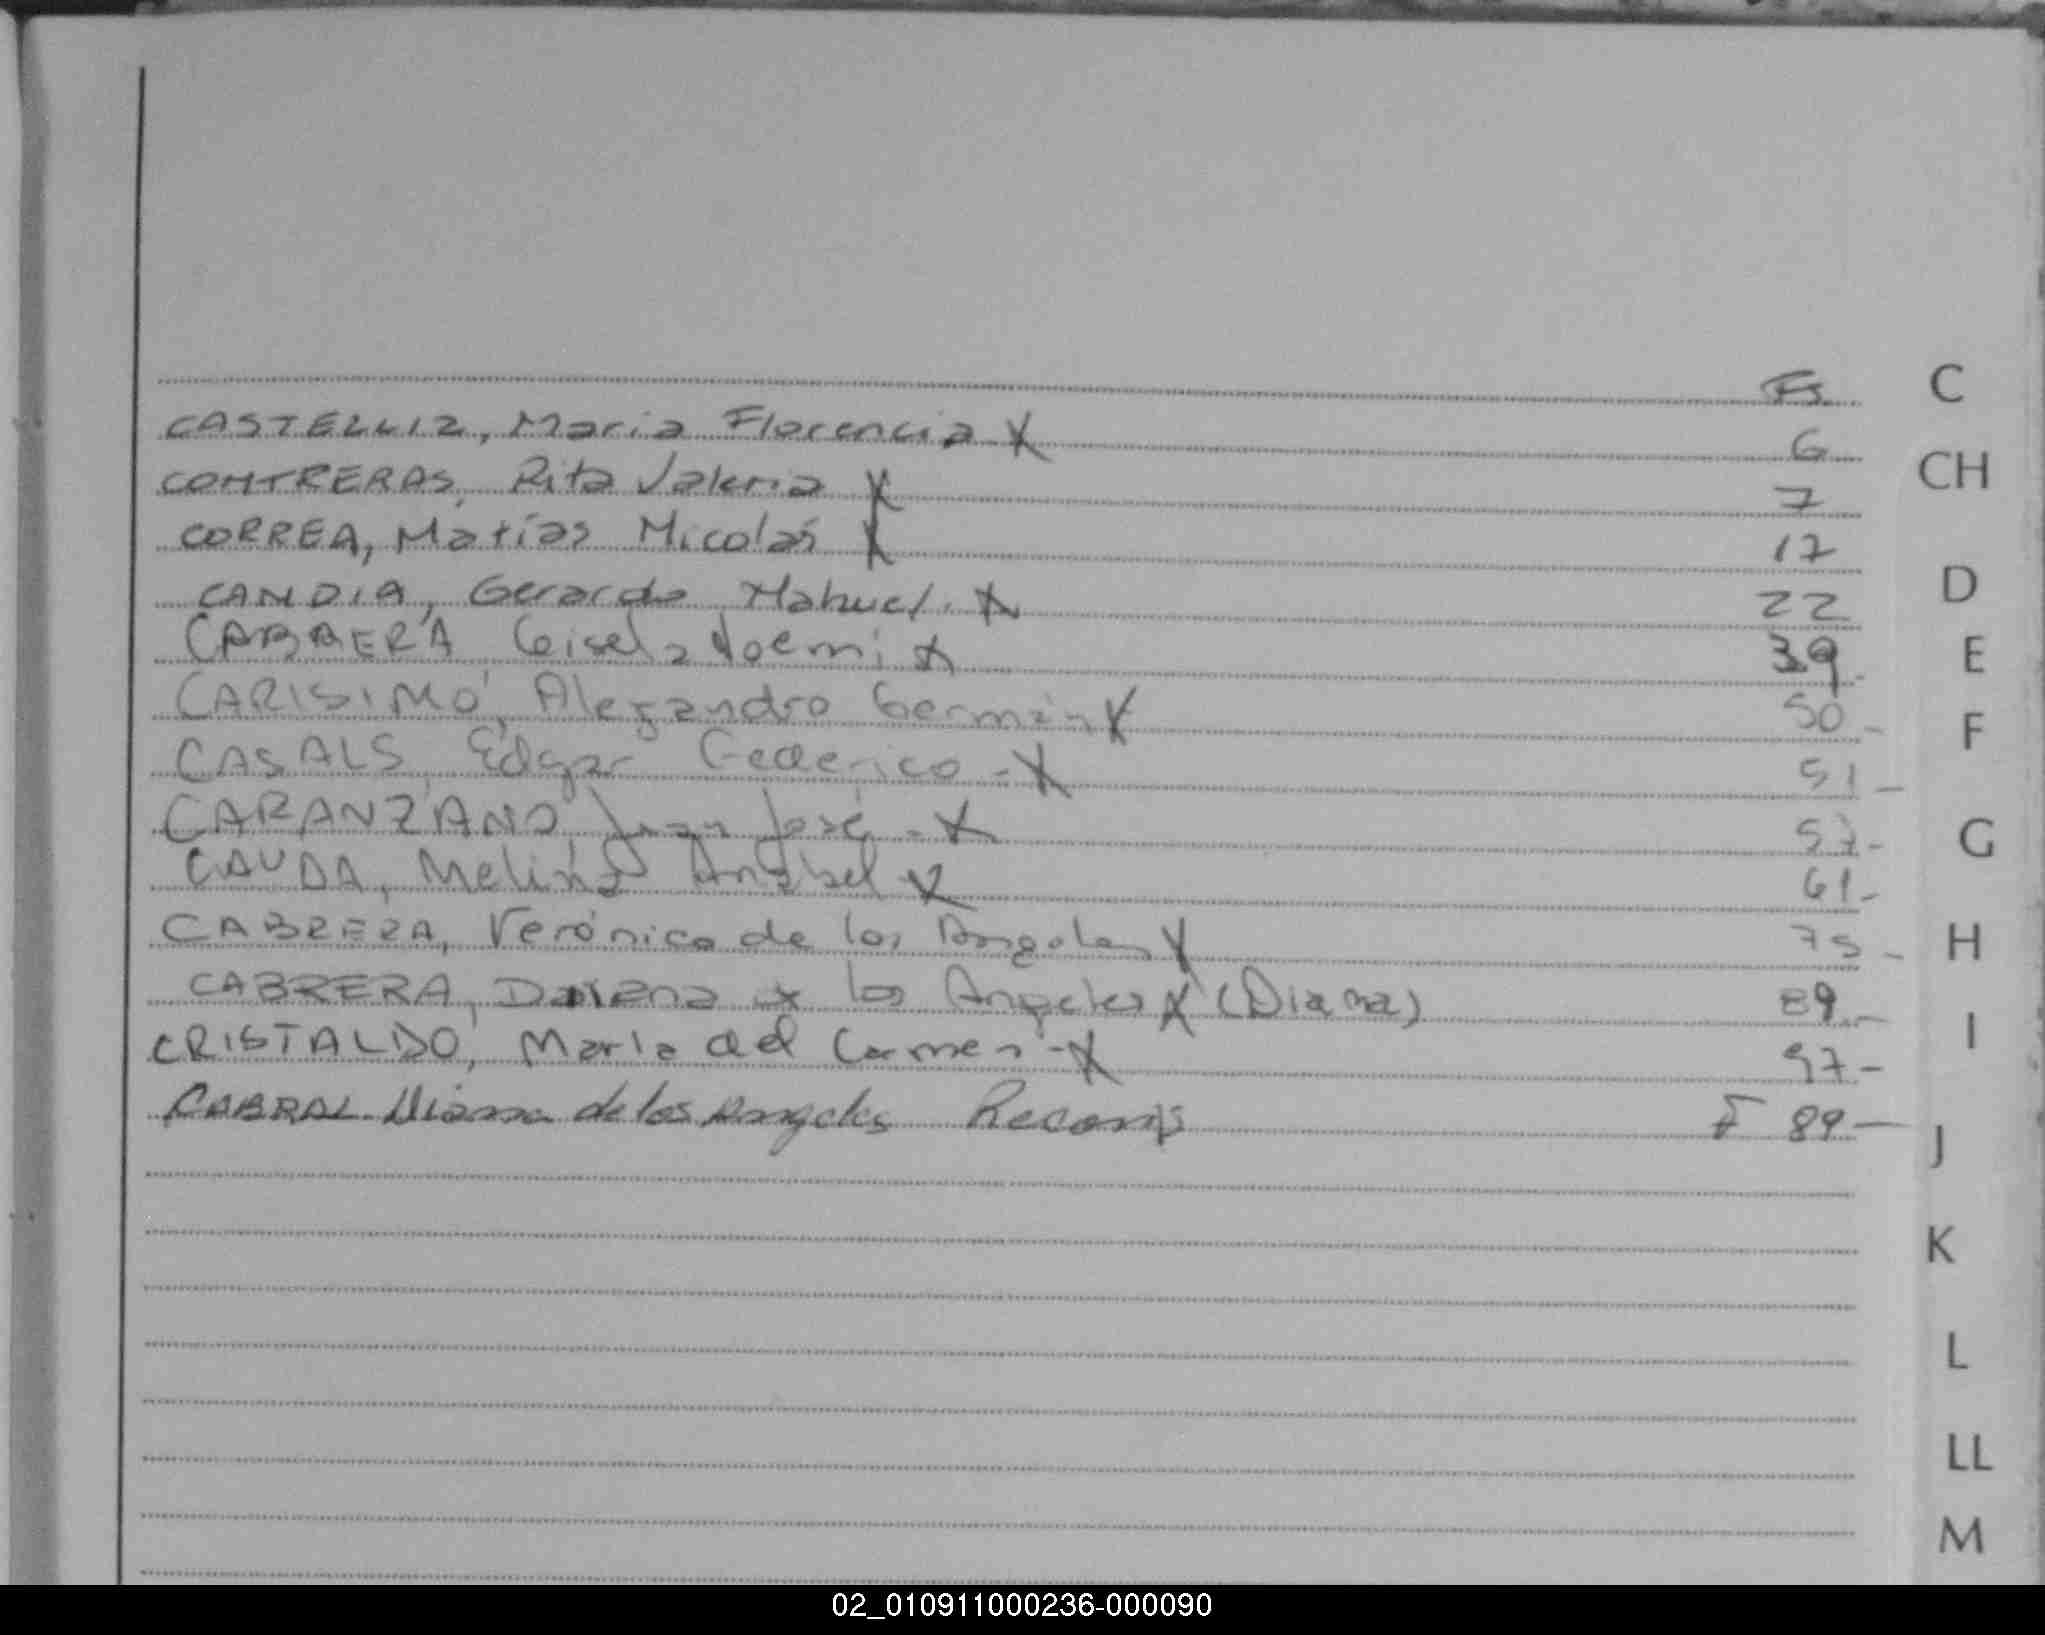 Fs
CASTELLIZ, Maria Florencia X 6
CONTRERAS, Rita Valeria X 7
CORREA, Matías Nicolás X 17
CANDIA, Gerardo Manuel. X 22
CABRERA, Gisela Noemi X 39.
CARISIMO, Alejandro Germán X 50-
CASALS, Edgar Federico - X 51-
CARANZANO, Juan José - X 57-
CAUDA, Melina Anabel X 61-
CABRERA, Verónica de los Angeles X 75-
CABRERA, los Angeles X (Diana) 89-
CRISTALDO, María del Carmen - X 97-
CABRAL Diana de los Angeles F 89-
C
CH
D
E
F
G
H
I
J
K
L
LL
M
02_010911000236-000090